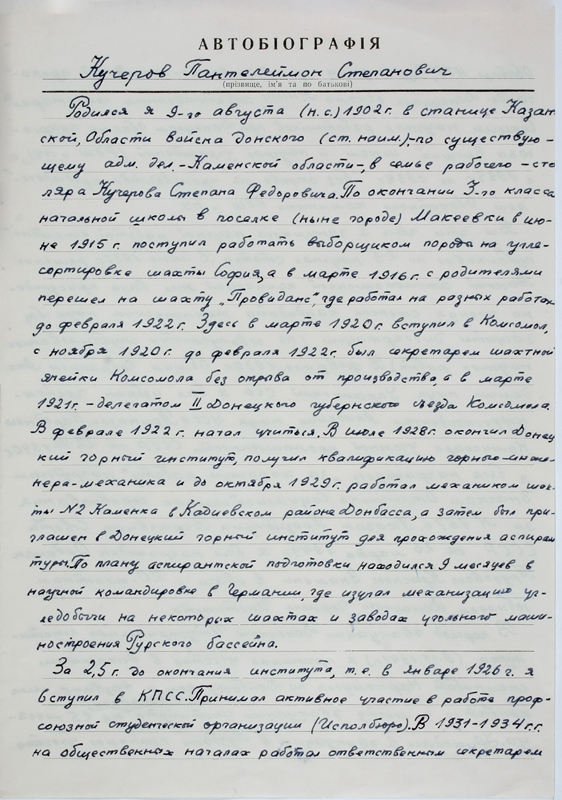 АВТОБІОГРАФІЯ
Кучеров Пантелеймон Степанович
(прізвище, ім'я та по батькові)
Родился я 9-го августа (н.с.) 1902 г. в станице Казан-
ской, Области Войска Донского (ст. наим.), -по существую-
щему адм. дел.-Каменской области-, в семье рабочего-сто-
ляра Кучерова Степана Федоровича. По окончании 3-го класса
начальной школы в поселке (ныне городе) Макеевки в ию-
не 1915 г. поступил работать выборщиком породы на угле-
сортировке шахты София, а в марте 1916 г. с родителями
перешел на шахту „Провиданс", где работал на разных работах
до февраля 1922 г. Здесь в марте 1920 г. вступил в Комсомол,
с ноября 1920 г. до февраля 1922 г. был секретарем шахтной
ячейки Комсомола без отрыва от производства, а в марте
1921 г. - делегатом II Донецкого губернского съезда Комсомола.
В феврале 1922 г. начал учиться. В июле 1928 г. окончил Донец-
кий горный институт, получил квалификацию горного-инже-
нера-механика и до октября 1929 г. работал механиком шах-
ты №2 Каменка в Кадиевском районе Донбасса, а затем был при-
глашен в Донецкий горный институт для прохождения аспиран-
туры. По плану аспирантской подготовки находился 9 месяцев в
научной командировке в Германии, где изучал механизацию уг-
ледобычи на некоторых шахтах и заводах угольного маши-
ностроения Рурского бассейна.
За 2,5 г. до окончания института, т.е. в январе 1926 г. я
вступил в КПСС. Принимал активное участие в работе проф-
союзной студенческой организации (Исполбюро). В 1931-1934 г.г.
на общественных началах работал ответственным секретарем